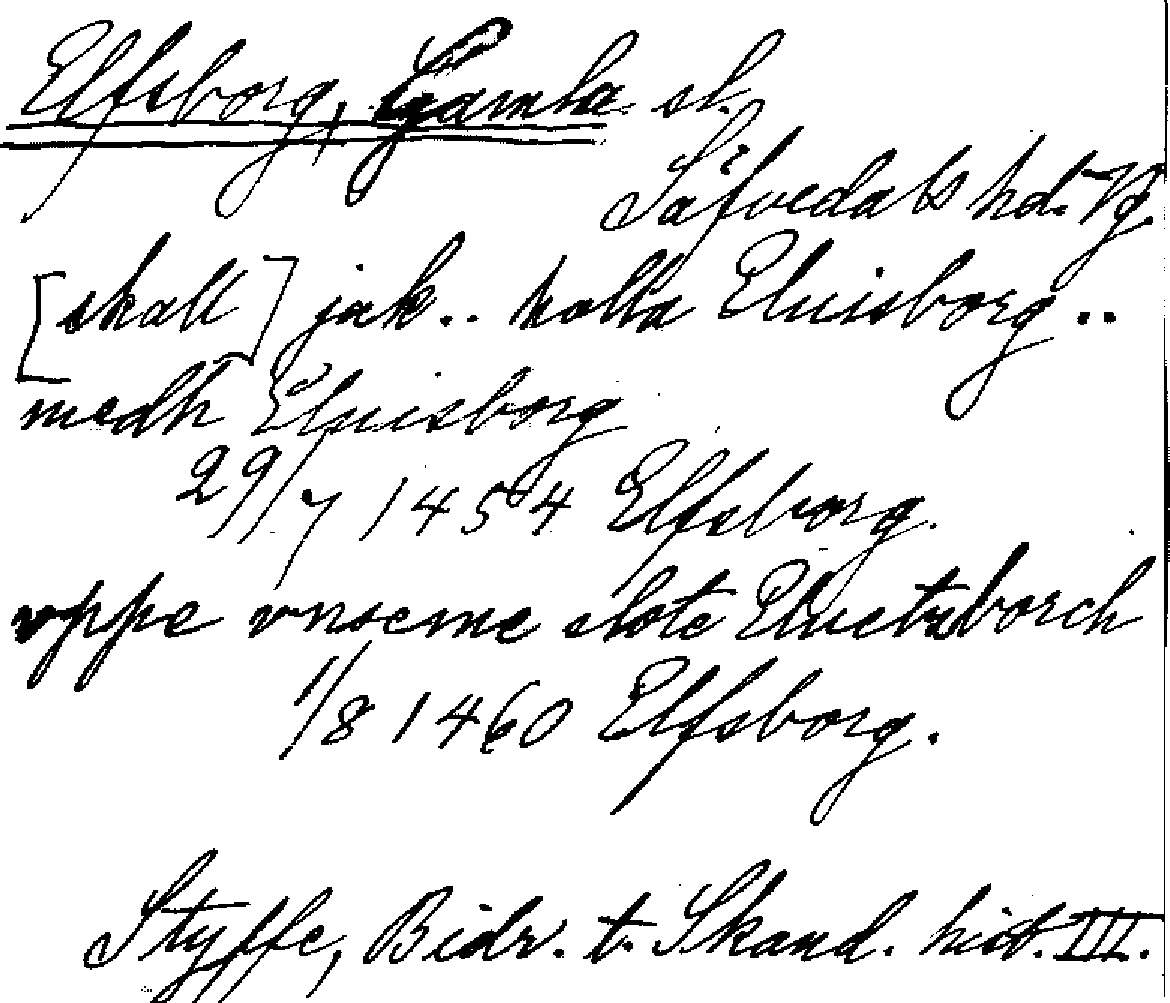 Elfsborg, Gamla sl.
Säfvedals hd. Vg.
[skall] jak.. holla Eluisborg..
medh Eluisborg
29/7 1454 Elfsborg.
vppe vnseme slote Eluetzborch
1/8 1460 Elfsborg.
Styffe, Bidr. t. Skand. hist. III.